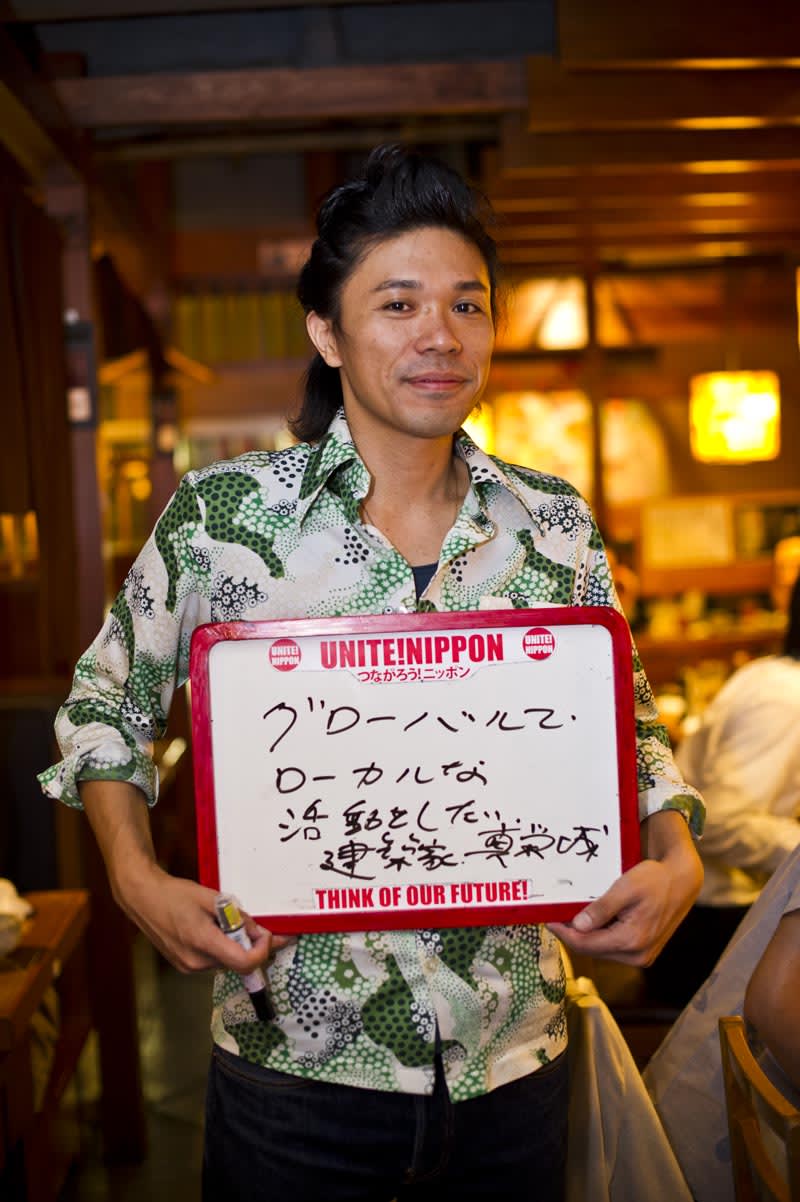 UNITE! NIPPON
UNITE!NIPPON
UNITE! NIPPON
つながろう!ニッポン
グローバルで.
ローカルな
活動をしたい.
建築家. 真栄城
THINK OF OUR FUTURE!